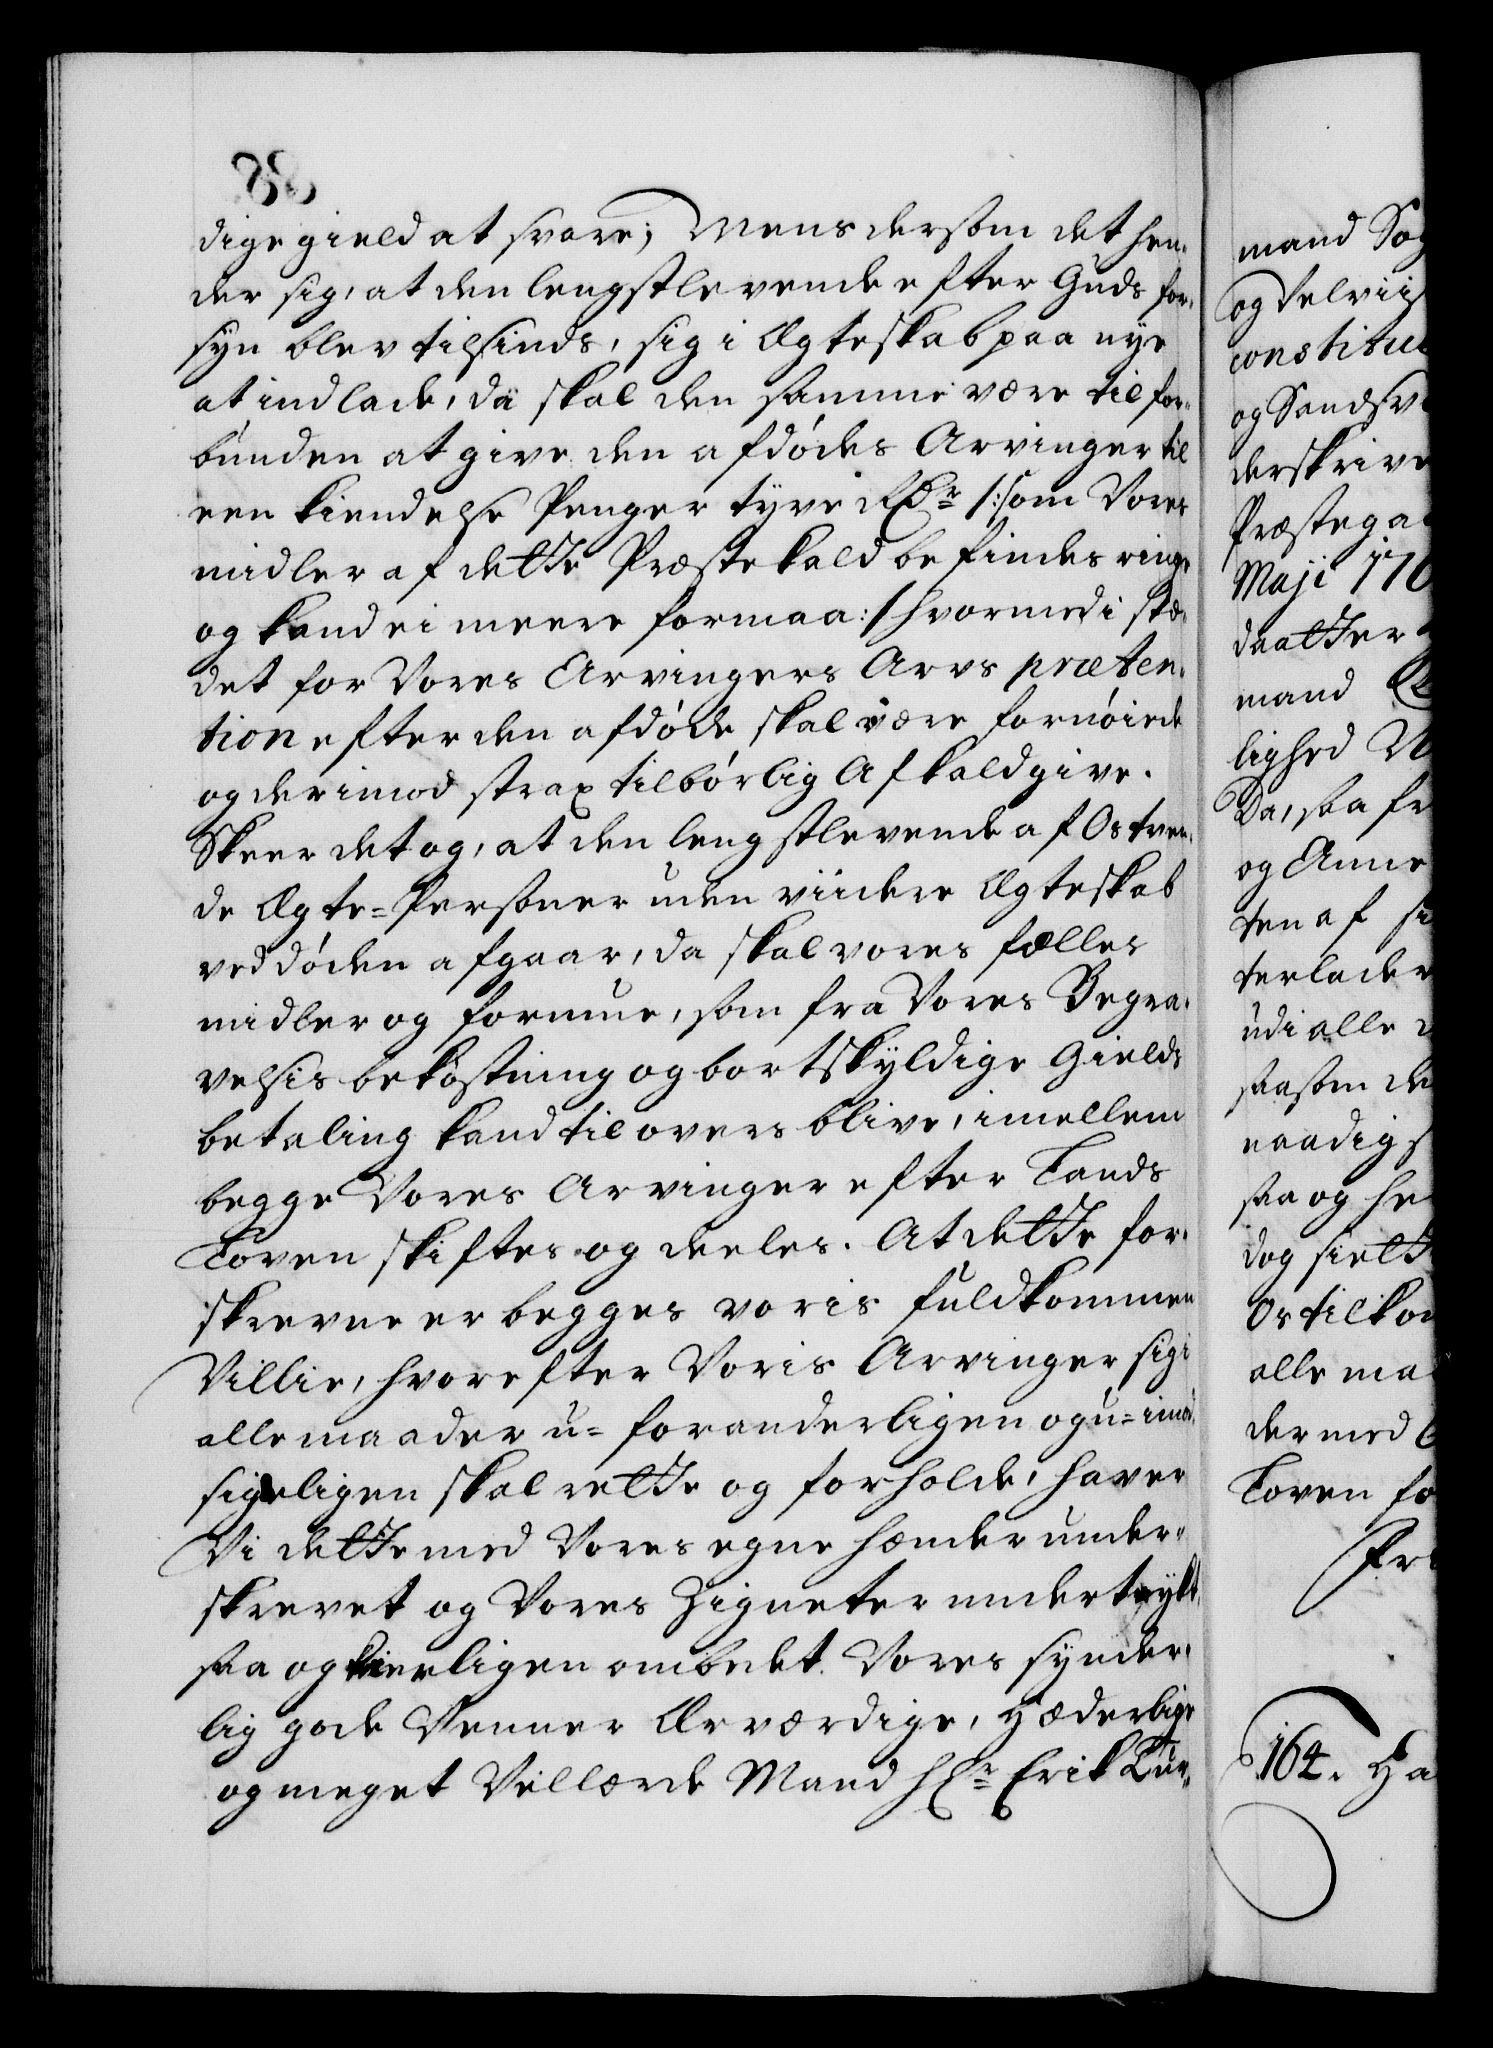 88
dige gield at svare; Mens dersom det hen¬
der sig, at den lengstlevende efter Guds for¬
syn blev tilsinds, sig i Ægteskab paa nye
at indlade, da skal den samme være tilfor¬
bunden at give den afdødes Arvinger til
een kiendelse Penger tyve Rdr /: som Vores
midler af dette Præstekald befindes ringe
og kand ei meere formaa :/ hvormed i stæ¬
det for Vores Arvingers Arvs præten¬
tion efter den afdøde skal være fornøiede
og derimod strax tilbørlig Afkald give.
Skeer det og, at den lengstlevende af Os tven¬
de Ægte=Personer uden viidere Ægteskab
ved døden afgaar, da skal vores fælles
midler og formue, som fra Vores Begra¬
velsis bekostning og bortskyldige Gields
betaling kand til overs blive, imellem
begge Vores Arvinger efter Lands
Loven skiftes og deeles. At dette for¬
skrevne er begges voris fuldkommen
Villie, hvorefter Voris Arvinger sig i
alle maader u=foranderligen og u=imod¬
sigeligen skal rette og forholde, haver
Vi dette med Vores egne hænder under¬
skrevet og Vores Zigneter undertrykt,
saa og kierligen ombedet Vores synder¬
lig gode Venner Ærværdige, Hæderlige
og meget Vellærde Mand Hr Erik Lun¬
mand Sog
og Delviis
constitue
og Sandsv
derskrive
Præstega
Maji 170
daatter
mand
lighed
Da, saa fr
og Anne
ten af si
terlader
udi alle
saasom de
naadigs
saa og he
dog siett
Os tilkom
alle ma
der med
Loven fo
Fr
164. Ha